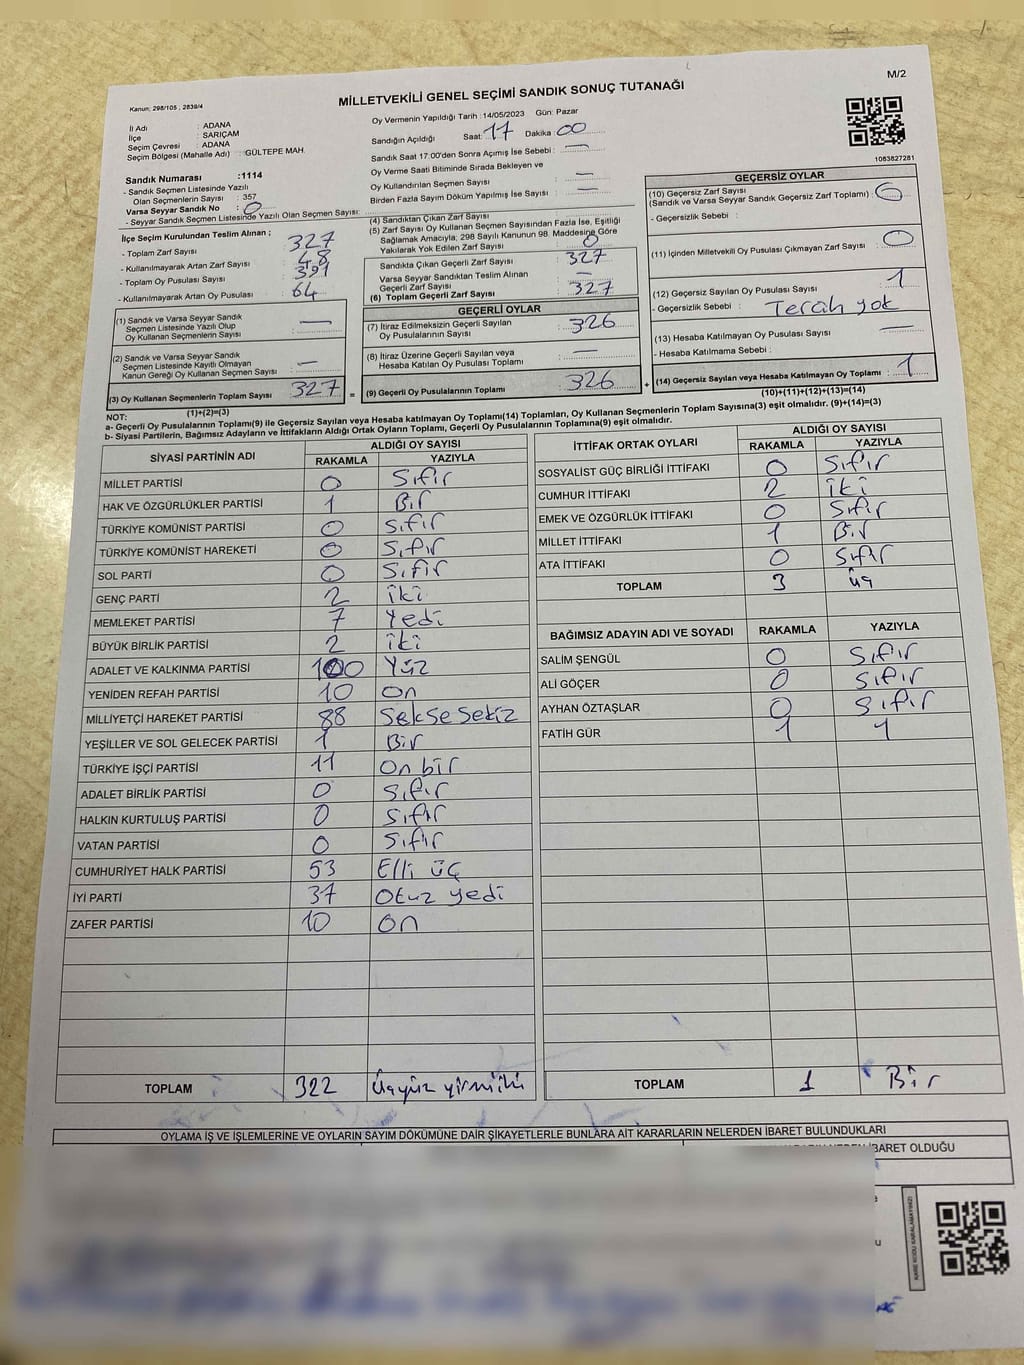 M/2
Kanun; 298/105 , 2839/4
MİLLETVEKİLİ GENEL SEÇİMİ SANDIK SONUÇ TUTANAĞI
İl Adı : ADANA
İlçe : SARIÇAM
Seçim Çevresi : ADANA
Seçim Bölgesi (Mahalle Adı) : GÜLTEPE MAH.
Oy Vermenin Yapıldığı Tarih :14/05/2023 Gün: Pazar
Sandığın Açıldığı Saat: 17 Dakika 00
Sandık Saat 17:00'den Sonra Açımış İse Sebebi : —
Oy Verme Saati Bitiminde Sırada Bekleyen ve
Oy Kullandırılan Seçmen Sayısı : —
Birden Fazla Sayım Döküm Yapılmış İse Sayısı : —
1083827281
Sandık Numarası :1114
- Sandık Seçmen Listesinde Yazılı
Olan Seçmenlerin Sayısı : 357
Varsa Seyyar Sandık No : 0
- Seyyar Sandık Seçmen Listesinde Yazılı Olan Seçmen Sayısı:
İlçe Seçim Kurulundan Teslim Alınan ;
- Toplam Zarf Sayısı : 327
- Kullanılmayarak Artan Zarf Sayısı : 48
- Toplam Oy Pusulası Sayısı : 391
- Kullanılmayarak Artan Oy Pusulası : 64
(1) Sandık ve Varsa Seyyar Sandık
Seçmen Listesinde Yazılı Olup
Oy Kullanan Seçmenlerin Sayısı : —
(2) Sandık ve Varsa Seyyar Sandık
Seçmen Listesinde Kayıtlı Olmayan
Kanun Gereği Oy Kullanan Seçmen Sayısı : —
(3) Oy Kullanan Seçmenlerin Toplam Sayısı : 327
(1)+(2)=(3)
(4) Sandıktan Çıkan Zarf Sayısı :
(5) Zarf Sayısı Oy Kullanan Seçmen Sayısından Fazla İse, Eşitliği
Sağlamak Amacıyla; 298 Sayılı Kanunun 98. Maddesine Göre
Yakılarak Yok Edilen Zarf Sayısı : 0
Sandıkta Çıkan Geçerli Zarf Sayısı : 327
Varsa Seyyar Sandıktan Teslim Alınan
Geçerli Zarf Sayısı : —
(6) Toplam Geçerli Zarf Sayısı : 327
GEÇERLİ OYLAR
(7) İtiraz Edilmeksizin Geçerli Sayılan
Oy Pusulalarının Sayısı : 326
(8) İtiraz Üzerine Geçerli Sayılan veya
Hesaba Katılan Oy Pusulası Toplamı : —
(9) Geçerli Oy Pusulalarının Toplamı : 326
GEÇERSİZ OYLAR
(10) Geçersiz Zarf Sayısı
(Sandık ve Varsa Seyyar Sandık Geçersiz Zarf Toplamı) : 0
- Geçersizlik Sebebi :
(11) İçinden Milletvekili Oy Pusulası Çıkmayan Zarf Sayısı : 0
(12) Geçersiz Sayılan Oy Pusulası Sayısı : 1
- Geçersizlik Sebebi : Tercah yok
(13) Hesaba Katılmayan Oy Pusulası Sayısı : —
- Hesaba Katılmama Sebebi :
(14) Geçersiz Sayılan veya Hesaba Katılmayan Oy Toplamı : 1
(10)+(11)+(12)+(13)=(14)
NOT:
a- Geçerli Oy Pusulalarının Toplamı(9) ile Geçersiz Sayılan veya Hesaba katılmayan Oy Toplamı(14) Toplamları, Oy Kullanan Seçmenlerin Toplam Sayısına(3) eşit olmalıdır. (9)+(14)=(3)
b- Siyasi Partilerin, Bağımsız Adayların ve İttifakların Aldığı Ortak Oyların Toplamı, Geçerli Oy Pusulalarının Toplamına(9) eşit olmalıdır.
SİYASİ PARTİNİN ADI ALDIĞI OY SAYISI
RAKAMLA YAZIYLA
MİLLET PARTİSİ 0 Sıfır
HAK VE ÖZGÜRLÜKLER PARTİSİ 1 Bir
TÜRKİYE KOMÜNİST PARTİSİ 0 Sıfır
TÜRKİYE KOMÜNİST HAREKETİ 0 Sıfır
SOL PARTİ 0 Sıfır
GENÇ PARTİ 2 iki
MEMLEKET PARTİSİ 7 Yedi
BÜYÜK BİRLİK PARTİSİ 2 iki
ADALET VE KALKINMA PARTİSİ 100 Yüz
YENİDEN REFAH PARTİSİ 10 On
MİLLİYETÇİ HAREKET PARTİSİ 88 Sekse sekiz
YEŞİLLER VE SOL GELECEK PARTİSİ 1 Bir
TÜRKİYE İŞÇİ PARTİSİ 11 On bir
ADALET BİRLİK PARTİSİ 0 Sıfır
HALKIN KURTULUŞ PARTİSİ 0 Sıfır
VATAN PARTİSİ 0 Sıfır
CUMHURİYET HALK PARTİSİ 53 Elli üç
İYİ PARTİ 37 Otuz yedi
ZAFER PARTİSİ 10 On
TOPLAM 322 Üçyüz yirmiiki
İTTİFAK ORTAK OYLARI ALDIĞI OY SAYISI
RAKAMLA YAZIYLA
SOSYALİST GÜÇ BİRLİĞİ İTTİFAKI 0 Sıfır
CUMHUR İTTİFAKI 2 iki
EMEK VE ÖZGÜRLÜK İTTİFAKI 0 Sıfır
MİLLET İTTİFAKI 1 Bir
ATA İTTİFAKI 0 Sıfır
TOPLAM 3 üç
BAĞIMSIZ ADAYIN ADI VE SOYADI RAKAMLA YAZIYLA
SALİM ŞENGÜL 0 Sıfır
ALİ GÖÇER 0 Sıfır
AYHAN ÖZTAŞLAR 0 Sıfır
FATİH GÜR 1 1
TOPLAM 1 Bir
OYLAMA İŞ VE İŞLEMLERİNE VE OYLARIN SAYIM DÖKÜMÜNE DAİR ŞİKAYETLERLE BUNLARA AİT KARARLARIN NELERDEN İBARET BULUNDUKLARI
İBARET OLDUĞU
KARE KODU KARALAMAYINIZ!